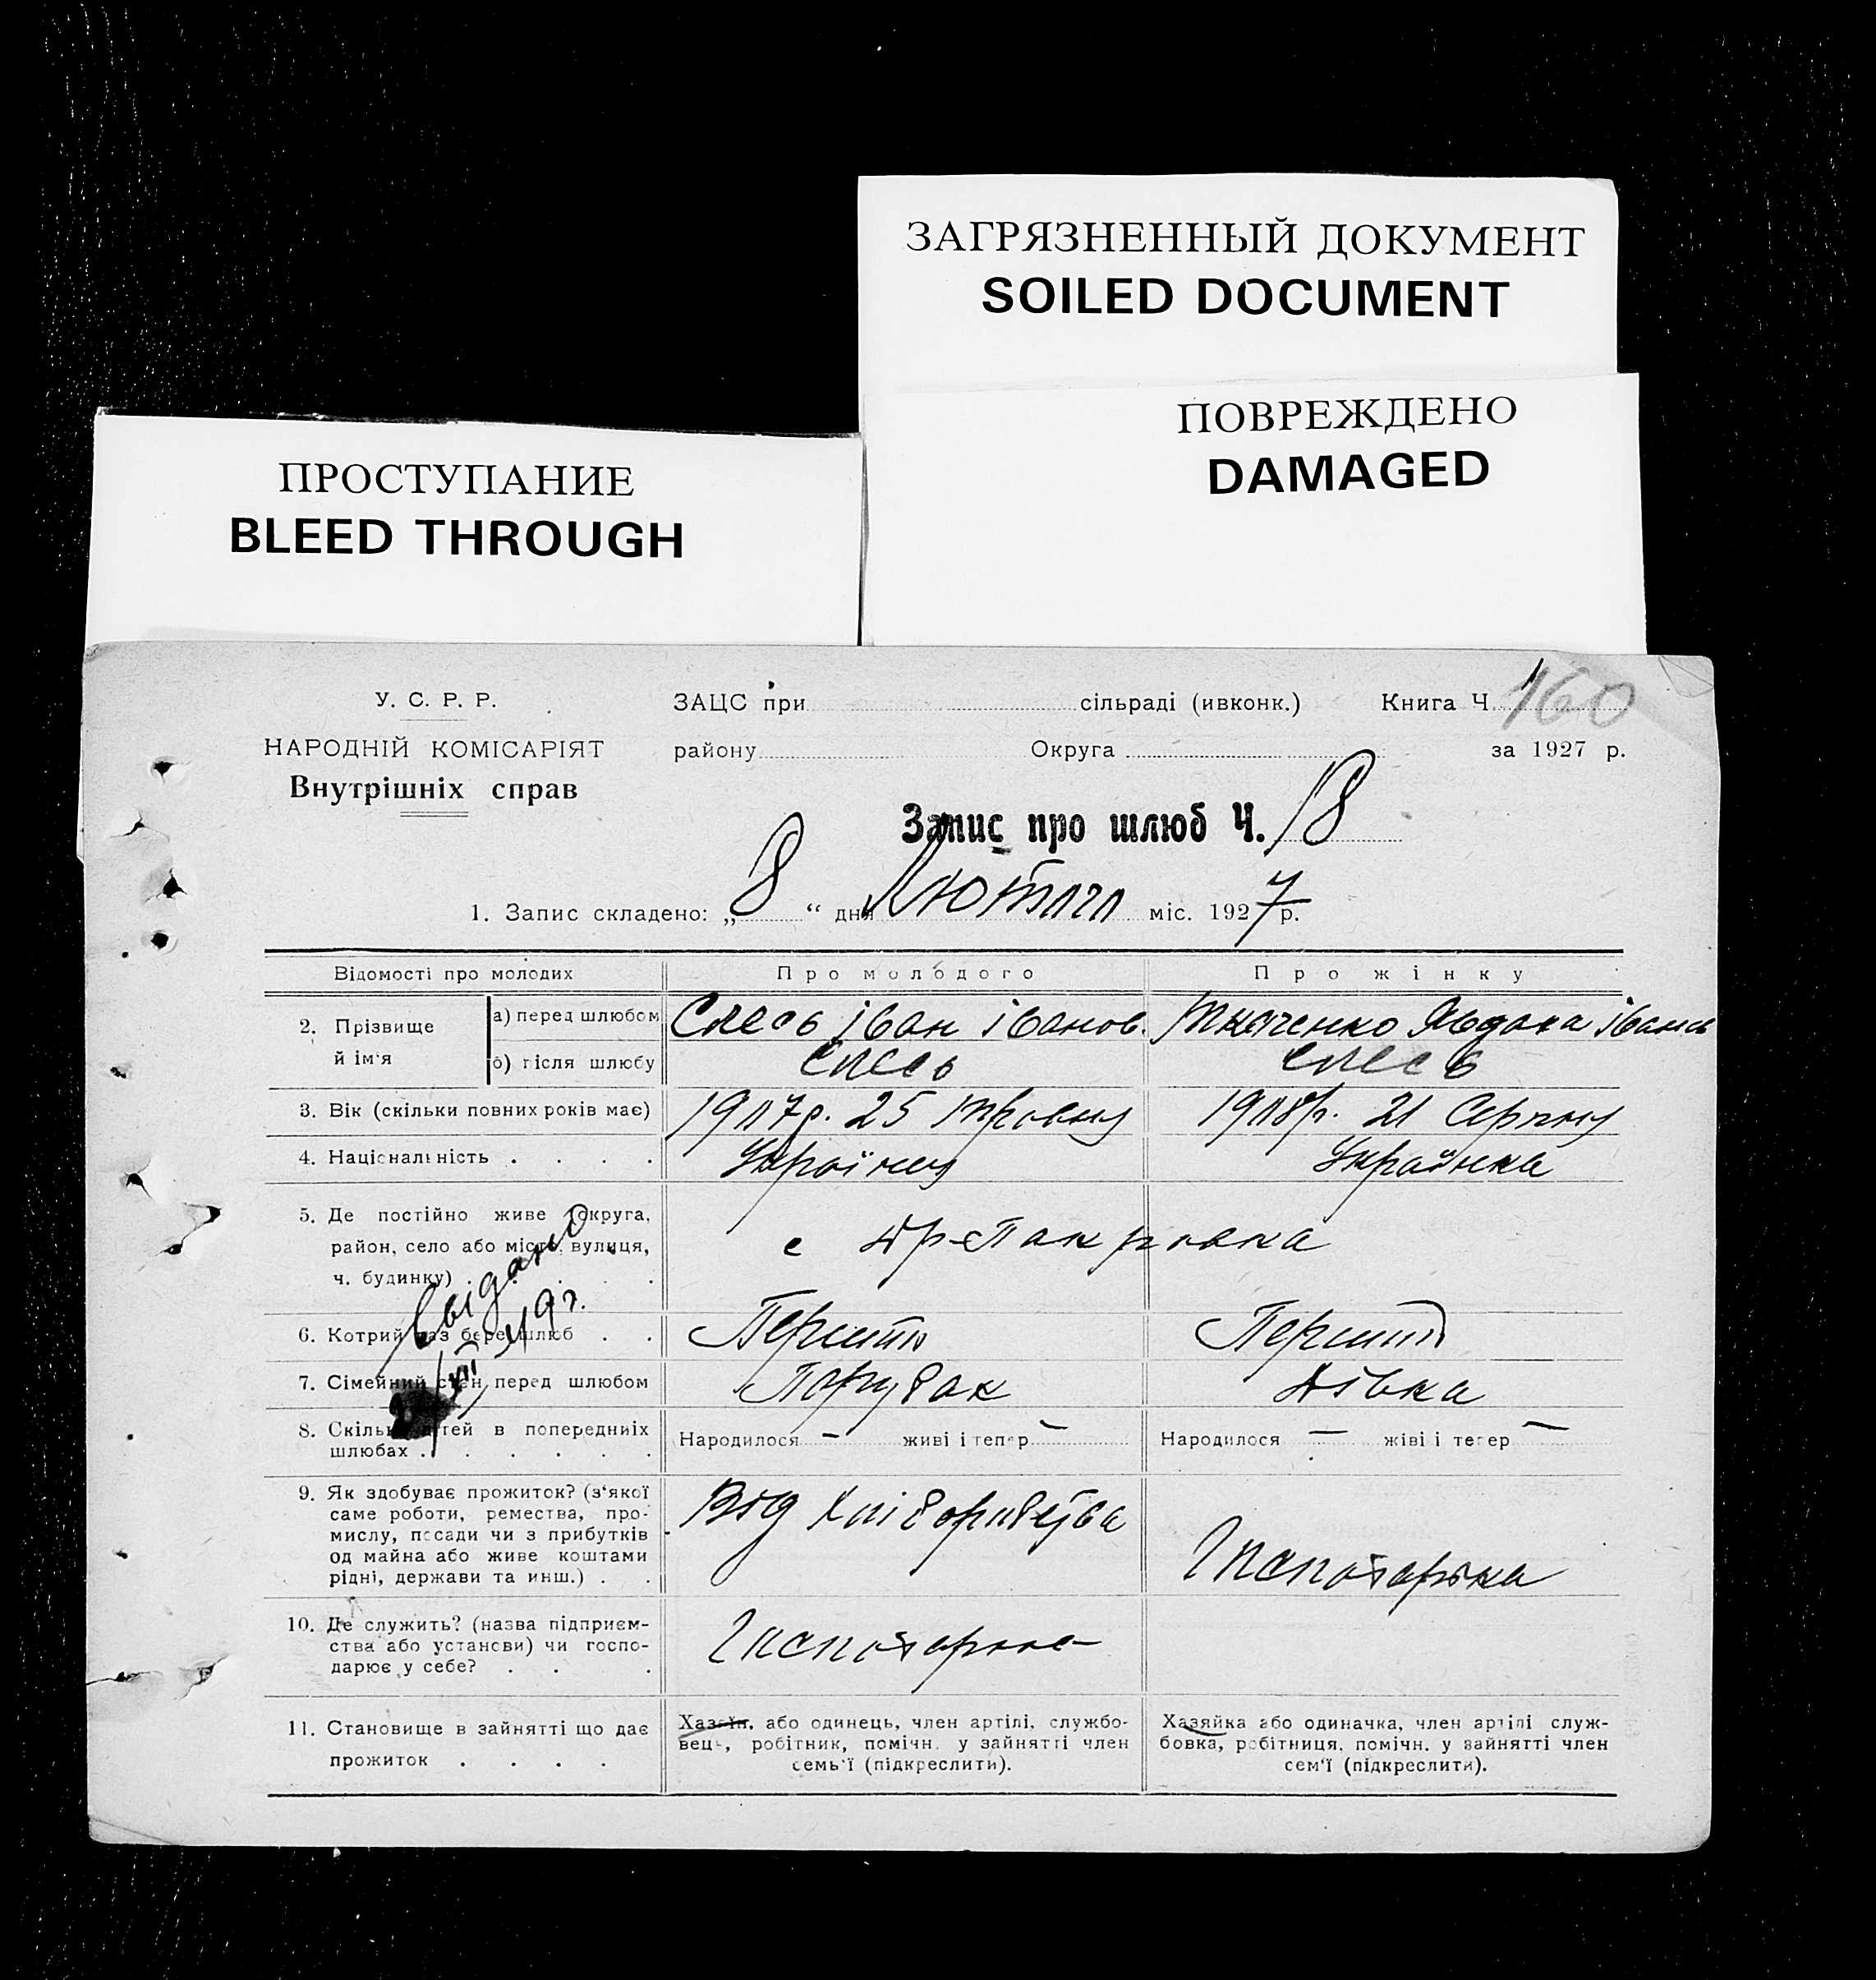 ЗАГРЯЗНЕННЫЙ ДОКУМЕНТ
SOILED DOCUMENT
ПОВРЕЖДЕНО
DAMAGED
ПРОСТУПАНИЕ
BLEED THROUGH
У. С. Р. Р.
НАРОДНІЙ КОМІСАРІЯТ
Внутрішніх справ
ЗАЦС при сільраді (ивконк.) Книга Ч. 160
району Округа за 1927 р.
Запис про шлюб Ч. 18
1. Запис складено: „8“ дня Лютага міс. 1927 р.
Відомості про молодих Про молодого Про жінку
2. Прізвище й ім'я
а) перед шлюбом Слесь іван іванов. Ткаченко Явдоха
б) після шлюбу Слесь Слесь
3. Вік (скільки повних років має) 25 21
4. Національність . . . . Українец Українка
5. Де постійно живе (округа,
район, село або місто, вулиця,
ч. будинку) . . . . .
с
6. Котрий раз бере шлюб . . Перший Перший
7. Сімейний стан перед шлюбом Парубак Дівка
8. Скільки дітей в попередніх
шлюбах . . . . . .
Народилося — живі і тепер — Народилося — жіві і тепер —
9. Як здобуває прожиток? (з'якої
саме роботи, ремества, про-
мислу, посади чи з прибутків
од майна або живе коштами
рідні, держави та инш.) . .
Від
10. Де служить? (назва підприєм-
ства або установи) чи госпо-
дарює у себе? . . .
11. Становище в зайнятті що дає
прожиток . . . .
Хазяїн, або одинець, член артілі, службо-
вець, робітник, помічн. у зайнятті член
семь'ї (підкреслити).
Хазяйка або одиначка, член артілі служ-
бовка, робітниця, помічн. у зайнятті член
сем'ї (підкреслити).